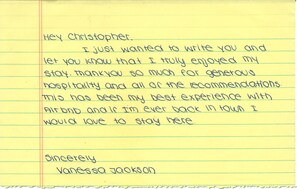 Hey Christopher.
I just wanted to write you and
let you know that I truly enjoyed my
stay. Thankyou so much for generous
hospitality and all of the recommendations
This has been my best experience with
Airbnb and if I'm ever back in town I
would love to stay here
Sincerely
Vanessa Jackson